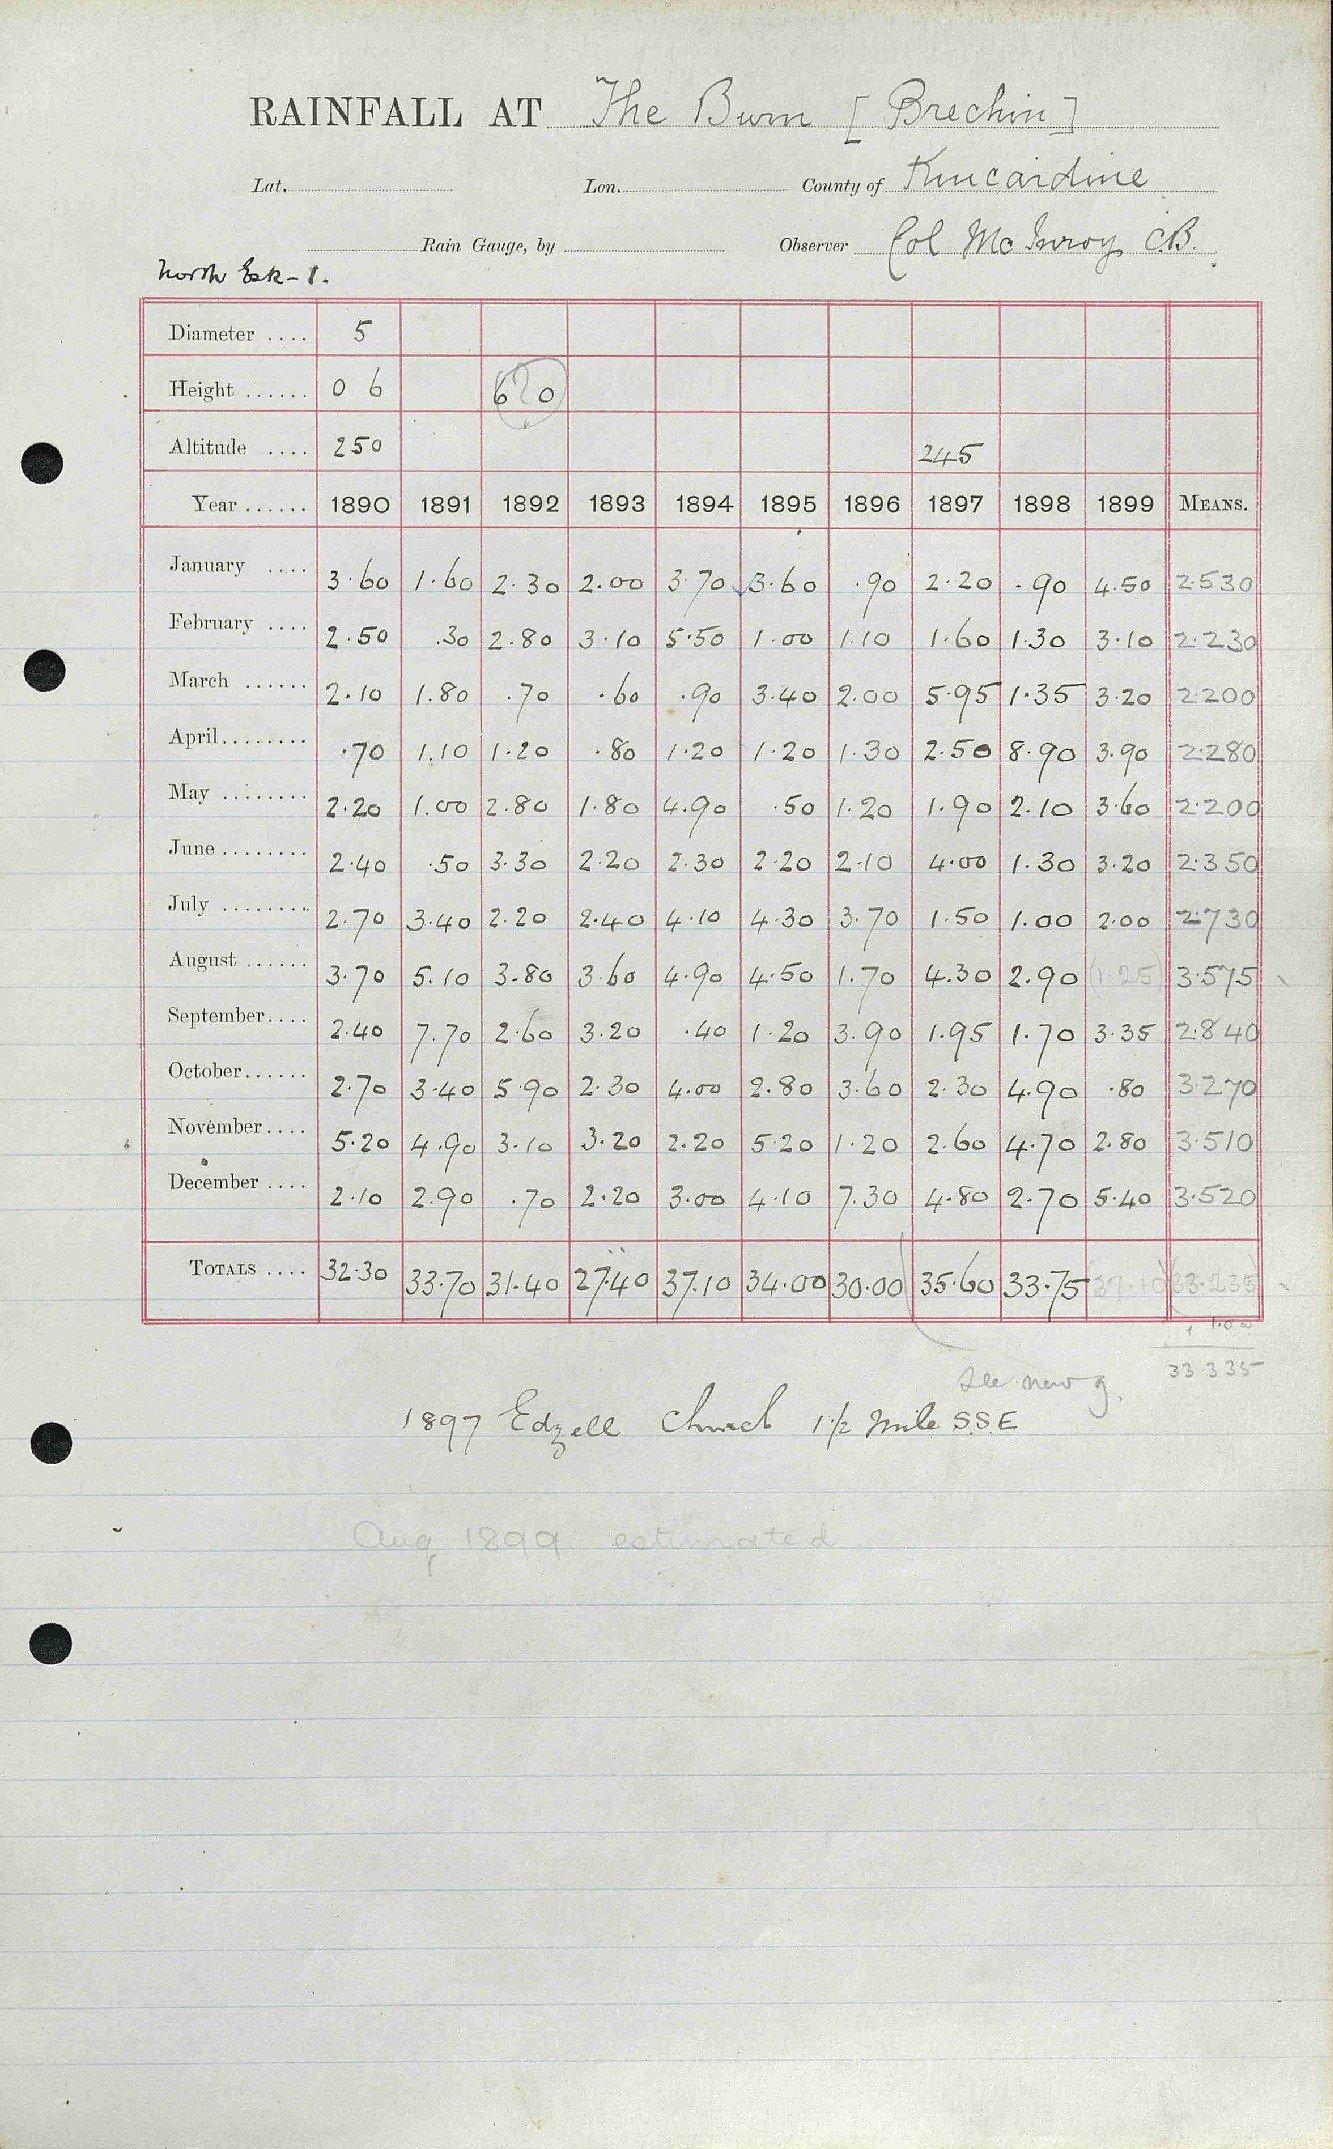 RAINFALL AT The Burn [Brechin]
Lat. Lon. County of Kincardine
Rain Gauge, by Observer Col McInroy C.B.
North Esk - 1.
Diameter .... 5
Height ...... 0 6 6 0
Altitude .... 250 245
Year ...... 1890 1891 1892 1893 1894 1895 1896 1897 1898 1899 MEANS.
January .... 3.60 1.60 2.30 2.00 3.70 3.60 .90 2.20 .90 4.50 2.530
February .... 2.50 .30 2.80 3.10 5.50 1.00 1.10 1.60 1.30 3.10 2.230
March ...... 2.10 1.80 .70 .60 .90 3.40 2.00 5.95 1.35 3.20 2.200
April........ .70 1.10 1.20 .80 1.20 1.20 1.30 2.50 8.90 3.90 2.280
May ........ 2.20 1.00 2.80 1.80 4.90 .50 1.20 1.90 2.10 3.60 2.200
June ........ 2.40 .50 3.30 2.20 2.30 2.20 2.10 4.00 1.30 3.20 2.350
July ........ 2.70 3.40 2.20 2.40 4.10 4.30 3.70 1.50 1.00 2.00 2.730
August ...... 3.70 5.10 3.80 3.60 4.90 4.50 1.70 4.30 2.90 (1.25) 3.575
September.... 2.40 7.70 2.60 3.20 .40 1.20 3.90 1.95 1.70 3.35 2.840
October...... 2.70 3.40 5.90 2.30 4.00 2.80 3.60 2.30 4.90 .80 3.270
November.... 5.20 4.90 3.10 3.20 2.20 5.20 1.20 2.60 4.70 2.80 3.510
December .... 2.10 2.90 .70 2.20 3.00 4.10 7.30 4.80 2.70 5.40 3.520
TOTALS .... 32.30 33.70 31.40 27.40 37.10 34.00 30.00 35.60 33.75 (37.10) (33.235)
33.335
see new g.
1897 Edzell Church 1 1/2 mile S.S.E
Aug 1899 estimated